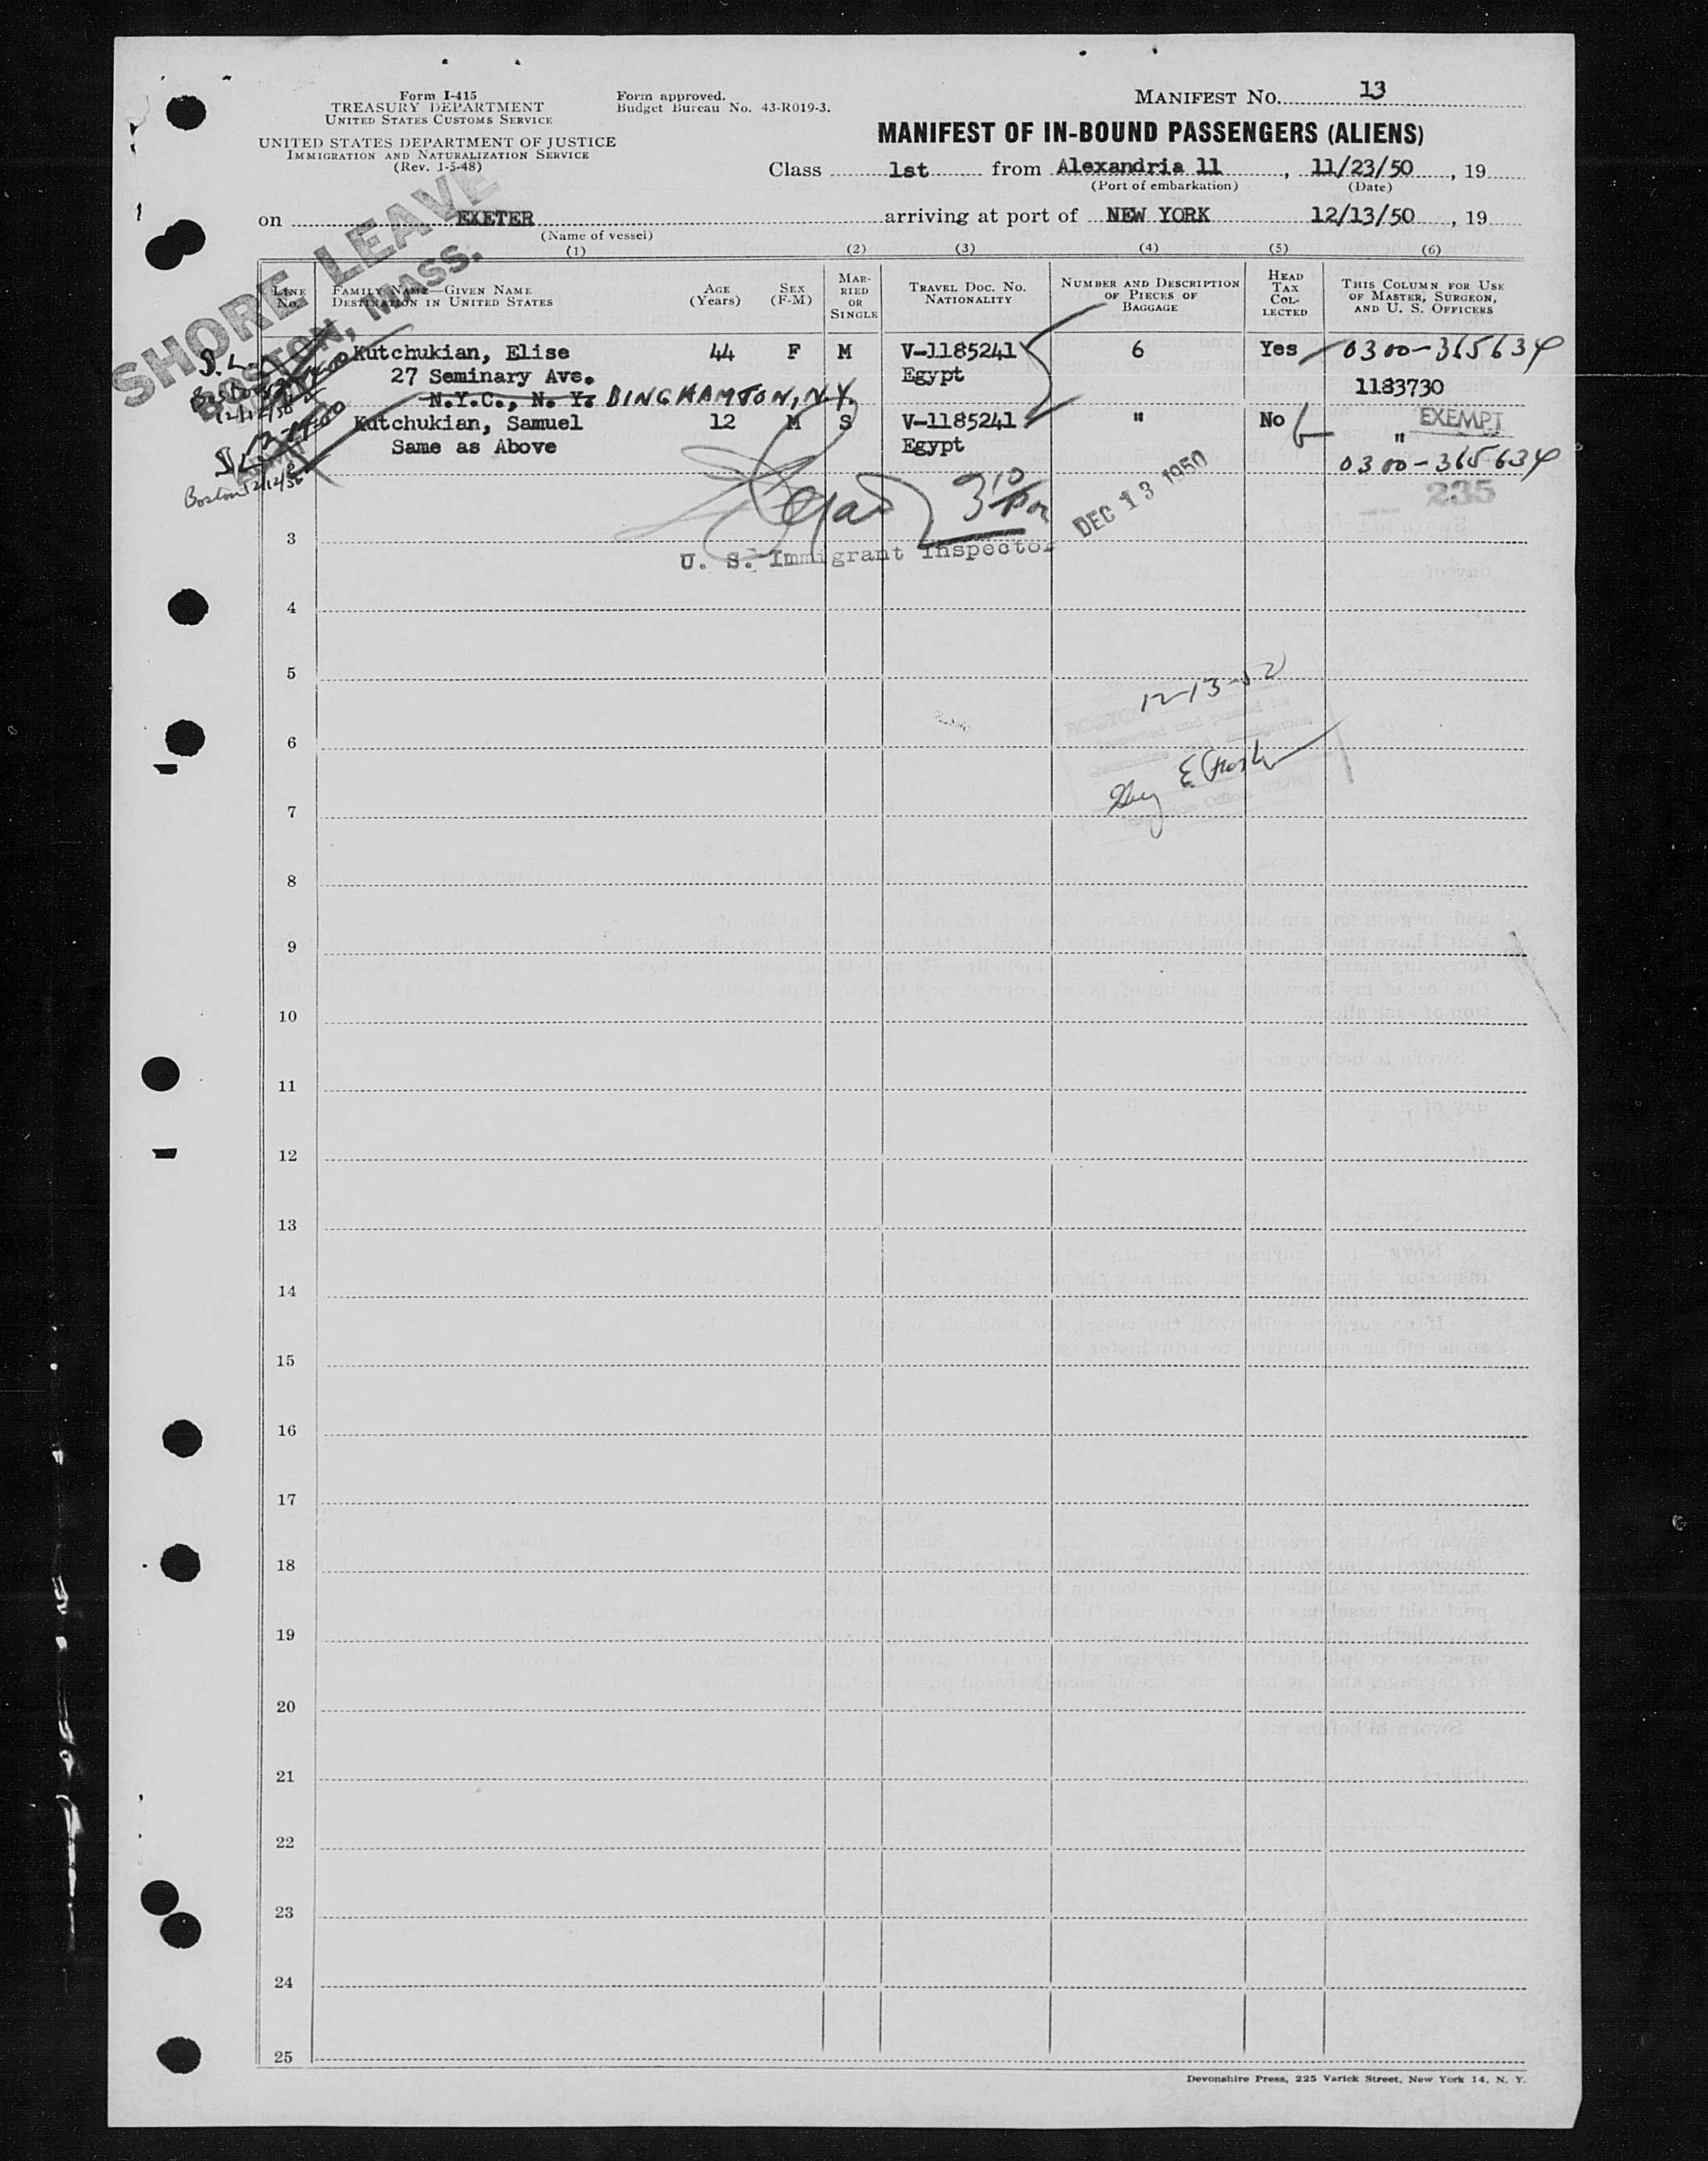 Form I-415
TREASURY DEPARTMENT
UNITED STATES CUSTOMS SERVICE
UNITED STATES DEPARTMENT OF JUSTICE
IMMIGRATION AND NATURALIZATION SERVICE
(Rev. 1-5-48)
Form approved.
Budget Bureau No. 43-R019-3.
MANIFEST NO. 13
MANIFEST OF IN-BOUND PASSENGERS (ALIENS)
Class 1st from Alexandria 11, 11/23/50, 19
(Port of embarkation) (Date)
on EXETER arriving at port of NEW YORK 12/13/50, 19
(Name of vessel)
SHORE LEAVE
BOSTON, MASS.
(1) (2) (3) (4) (5) (6)
LINE No.
FAMILY NAME—GIVEN NAME
DESTINATION IN UNITED STATES
AGE (Years)
SEX (F-M)
MARRIED OR SINGLE
TRAVEL DOC. NO. NATIONALITY
NUMBER AND DESCRIPTION OF PIECES OF BAGGAGE
HEAD TAX COLLECTED
THIS COLUMN FOR USE OF MASTER, SURGEON, AND U. S. OFFICERS
Kutchukian, Elise 44 F M V-1185241 6 Yes 0300-365634
27 Seminary Ave. Egypt 1183730
N.Y.C., N. Y. BINGHAMTON, N.Y.
Kutchukian, Samuel 12 M S V-1185241 " No EXEMPT
Same as Above Egypt "
0300-365634
S.L.
Boston 12/12/50
235
3 10 Pm
DEC 13 1950
U. S. Immigrant Inspector
3
4
5
12-13-50
6
7
8
9
10
11
12
13
14
15
16
17
18
19
20
21
22
23
24
25
Devonshire Press, 225 Varick Street, New York 14, N. Y.